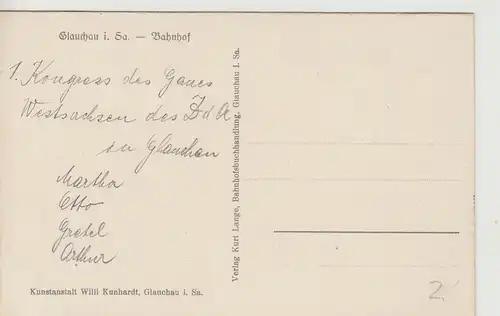 Glauchau i. Sa. — Bahnhof
1. Kongress des Gaues
Westsachsen des Z d A
in Glauchau
Martha
Otto
Gretel
Arthur
Kunstanstalt Willi Kunhardt, Glauchau i. Sa.
Verlag Kurt Lange, Bahnhofsbuchhandlung, Glauchau i. Sa.
2.